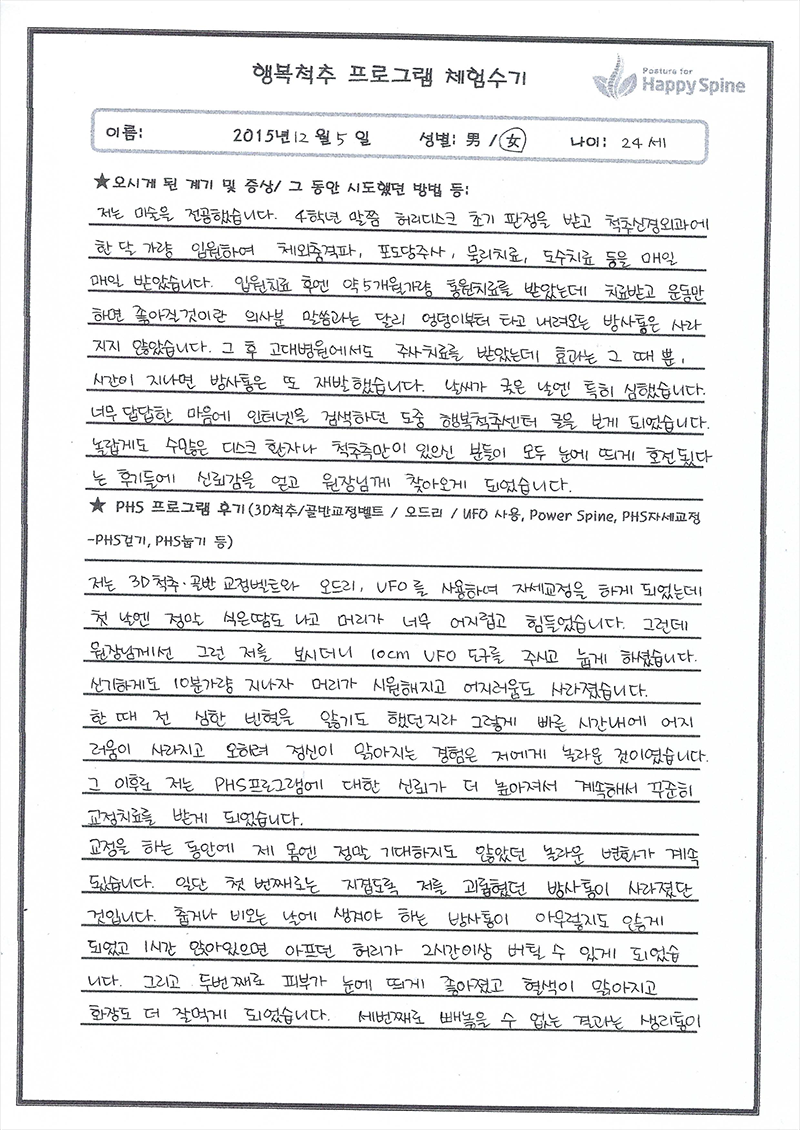 행복척추 프로그램 체험수기
Posture for
Happy Spine
이름: 2015년 12월 5일 성별: 男 / 女 나이: 24세
★오시게 된 계기 및 증상/ 그 동안 시도했던 방법 등:
저는 미술을 전공했습니다. 4학년 말쯤 허리디스크 초기 판정을 받고 척추신경외과에
한 달 가량 입원하여 체외충격파, 포도당주사, 물리치료, 도수치료 등을 매일
매일 받았습니다. 입원치료 후엔 약 5개월가량 통원치료를 받았는데 치료받고 운동만
하면 좋아질것이란 의사분 말씀과는 달리 엉덩이부터 타고 내려오는 방사통은 사라
지지 않았습니다. 그 후 고대병원에서도 주사치료를 받았는데 효과는 그 때 뿐,
시간이 지나면 방사통은 또 재발했습니다. 날씨가 궂은 날엔 특히 심했습니다.
너무 답답한 마음에 인터넷을 검색하던 도중 행복척추센터 글을 보게 되었습니다.
놀랍게도 수많은 디스크 환자나 척추측만이 있으신 분들이 모두 눈에 띄게 호전됬다
는 후기들에 신뢰감을 얻고 원장님께 찾아오게 되었습니다.
★ PHS 프로그램 후기(3D척추/골반교정벨트 / 오드리 / UFO 사용, Power Spine, PHS자세교정
-PHS걷기, PHS눕기 등)
저는 3D척추·골반 교정벨트와 오드리, UFO를 사용하여 자세교정을 하게 되었는데
첫 날엔 정말 식은땀도 나고 머리가 너무 어지럽고 힘들었습니다. 그런데
원장님께선 그런 저를 보시더니 10cm UFO 도구를 주시고 눕게 하셨습니다.
신기하게도 10분가량 지나자 머리가 시원해지고 어지러움도 사라졌습니다.
한 때 전 심한 빈혈을 앓기도 했던지라 그렇게 빠른 시간내에 어지
러움이 사라지고 오히려 정신이 맑아지는 경험은 저에게 놀라운 것이였습니다.
그 이후로 저는 PHS프로그램에 대한 신뢰가 더 높아져서 계속해서 꾸준히
교정치료를 받게 되었습니다.
교정을 하는 동안에 제 몸엔 정말 기대하지도 않았던 놀라운 변화가 계속
됬습니다. 일단 첫 번째로는 지겹도록 저를 괴롭혔던 방사통이 사라졌단
것입니다. 춥거나 비오는 날에 생겨야 하는 방사통이 아무렇지도 않게
되었고 1시간 앉아있으면 아프던 허리가 2시간이상 버틸 수 있게 되었습
니다. 그리고 두번째로 피부가 눈에 띄게 좋아졌고 혈색이 맑아지고
화장도 더 잘먹게 되었습니다. 세번째로 빼놓을 수 없는 결과는 생리통이